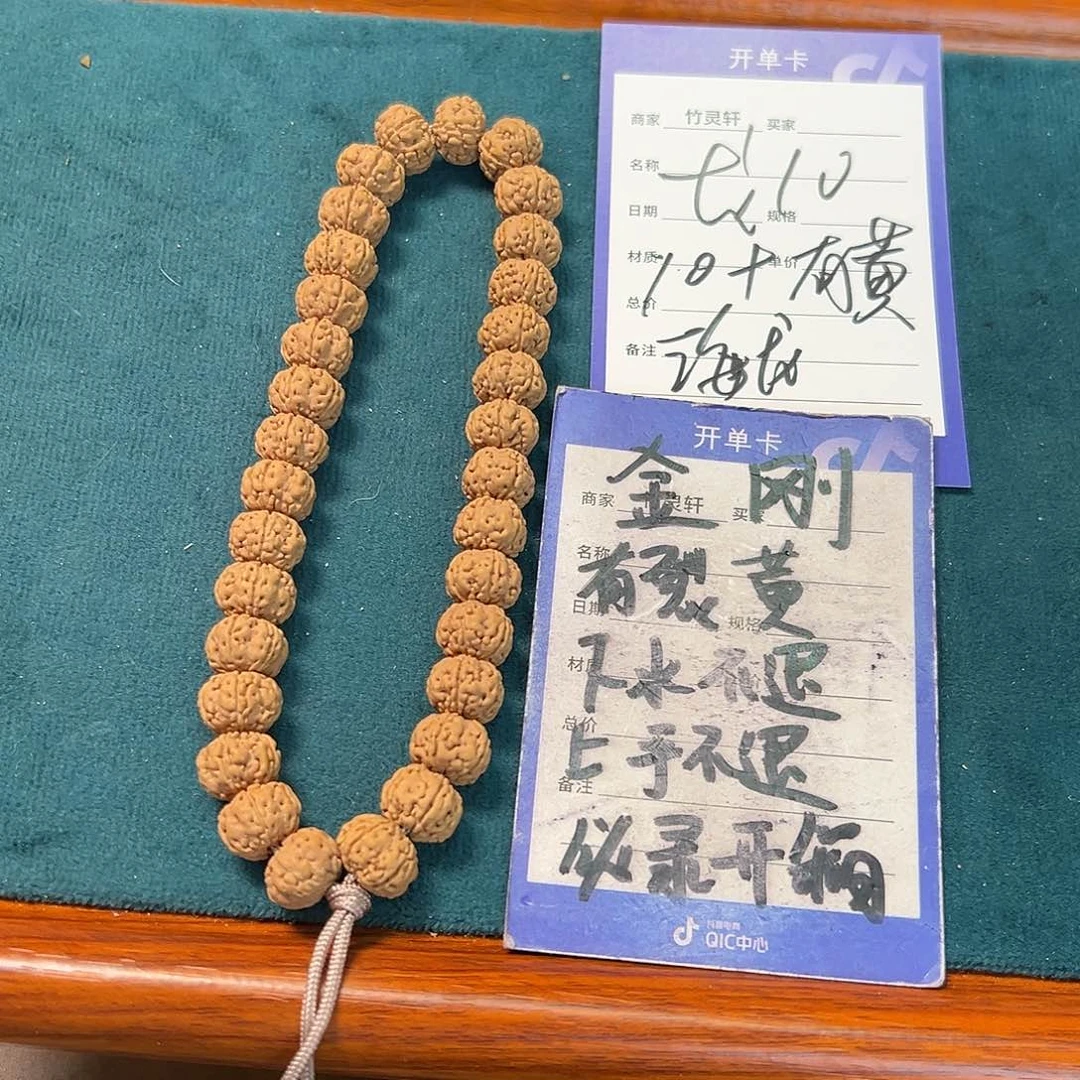 开单卡
商家 竹灵轩 买家
名称 10
日期 规格
材质 单价
10+有黄
总价
备注
开单卡
金刚
商家 灵轩 买
名称
有裂黄
日期 规格
下水不退
材质
总价
上手不退
备注
必录开箱
抖音电商
QIC中心